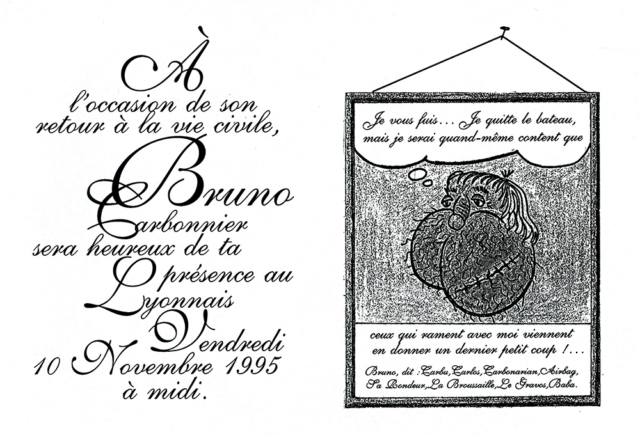 À
l'occasion de son
retour à la vie civile,
Bruno
Carbonnier
sera heureux de ta
présence au
Lyonnais
Vendredi
10 Novembre 1995
à midi.
Je vous fuis... Je quitte le bateau,
mais je serai quand-même content que
ceux qui rament avec moi viennent
en donner un dernier petit coup !...
Bruno, dit : Carbu, Carlos, Carbonarian, Airbag,
Sa Rondeur, La Broussaille, Le Graveo, Baba.